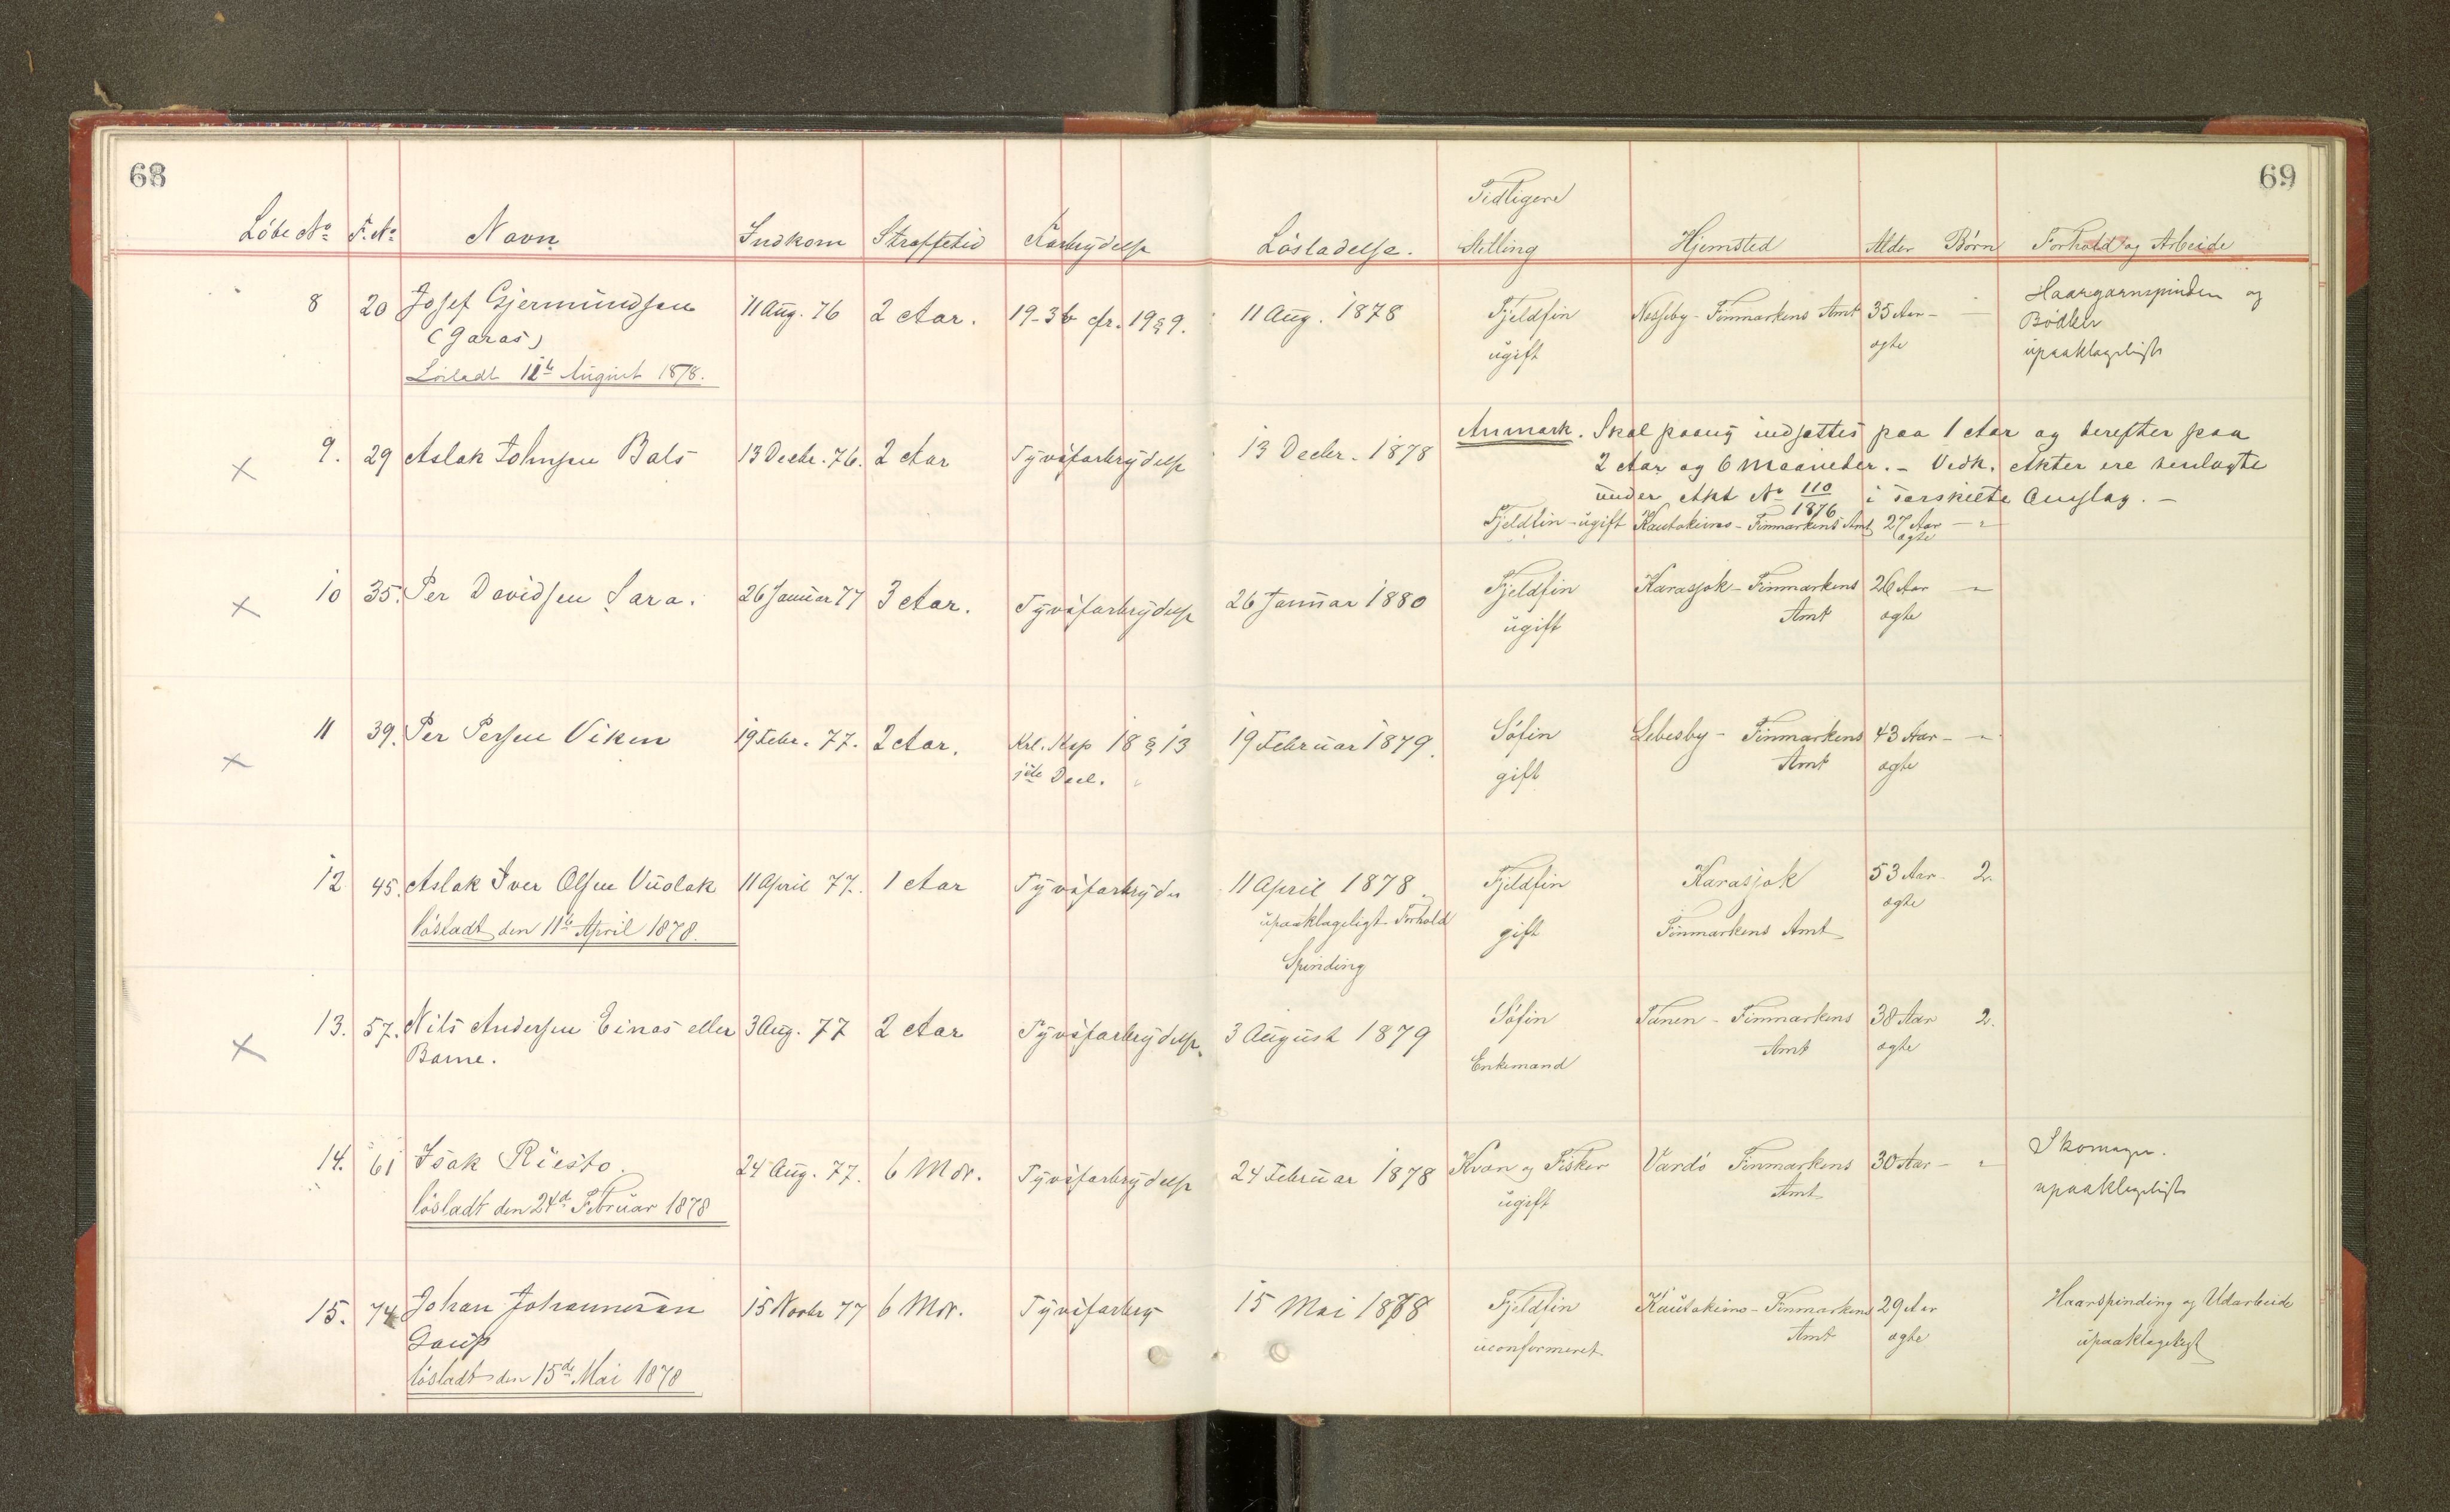 68
69
Løbe No F. No Navn Indkom Straffetid Forbrydelse Løsladelse. Tidligere Stilling Hjemsted Alder Børn Forhold og Arbeide
8 20 Josef Gjermundsen 11 Aug. 76 2 Aar. 19-3b cfr. 19 § 9. 11 Aug. 1878 Fjeldfin Nesseby - Finmarkens Amt 35 Aar - — Haargarnspinden og
(Garas) ugift ægte Bødker
Løsladt 11te August 1878. upaaklageligt
Anmærk. Skal paany indsættes paa 1 Aar og derefter paa
9. 29 Aslak Johnsen Bals 13 Decbr. 76. 2 Aar Tyvsforbrydelse 13 Decbr. 1878 2 Aar og 6 Maaneder. - Vedk. Akter ere henlagte
under Akt No 110/1876 i særskilte Omslag. -
Fjeldfin - ugift Kautokeino - Finmarkens Amt 27 Aar - "
ægte
10 35. Per Davidsen Sara. 26 Januar 77 3 Aar. Tyvsforbrydelse 26 Januar 1880 Fjeldfin Karasjok - Finmarkens 26 Aar —
ugift Amt ægte
11 39. Per Persen Viken 19 Febr. 77. 2 Aar. Krl. Kap 18 § 13 19 Februar 1879. Søfin Lebesby - Finmarkens 43 Aar - —
Deel. gift Amt ægte
12 45. Aslak Iver Olsen Vuolak 11 April 77. 1 Aar Tyvsforbryder 11 April 1878 Fjeldfin Karasjok 53 Aar - 2.
løsladt den 11te April 1878. upaaklageligt Forhold gift Finmarkens Amt ægte
Spinding
13. 57. Nils Andersen Einas eller 3 Aug. 77 2 Aar Tyvsforbrydelse. 3 August 1879 Søfin Tanen - Finmarkens 38 Aar 2.
Barne. Enkemand Amt ægte
14. 61 Isak Riesto. 24 Aug. 77. 6 Mdr. Tyvsforbrydelse 24 Februar 1878 Kvæn og Fisker Vardø Finmarkens 30 Aar - " Skomager.
løsladt den 24de Februar 1878 ugift Amt upaaklageligt
15. 74 Johan Johannesen 15 Novbr 77 6 Mdr. Tyvsforbry 15 Mai 1878 Fjeldfin Kautokeino - Finmarkens 29 Aar Haarspinding og Udarbeide
Gaup uconfirmeret Amt ægte upaaklageligt
løsladt den 15de Mai 1878